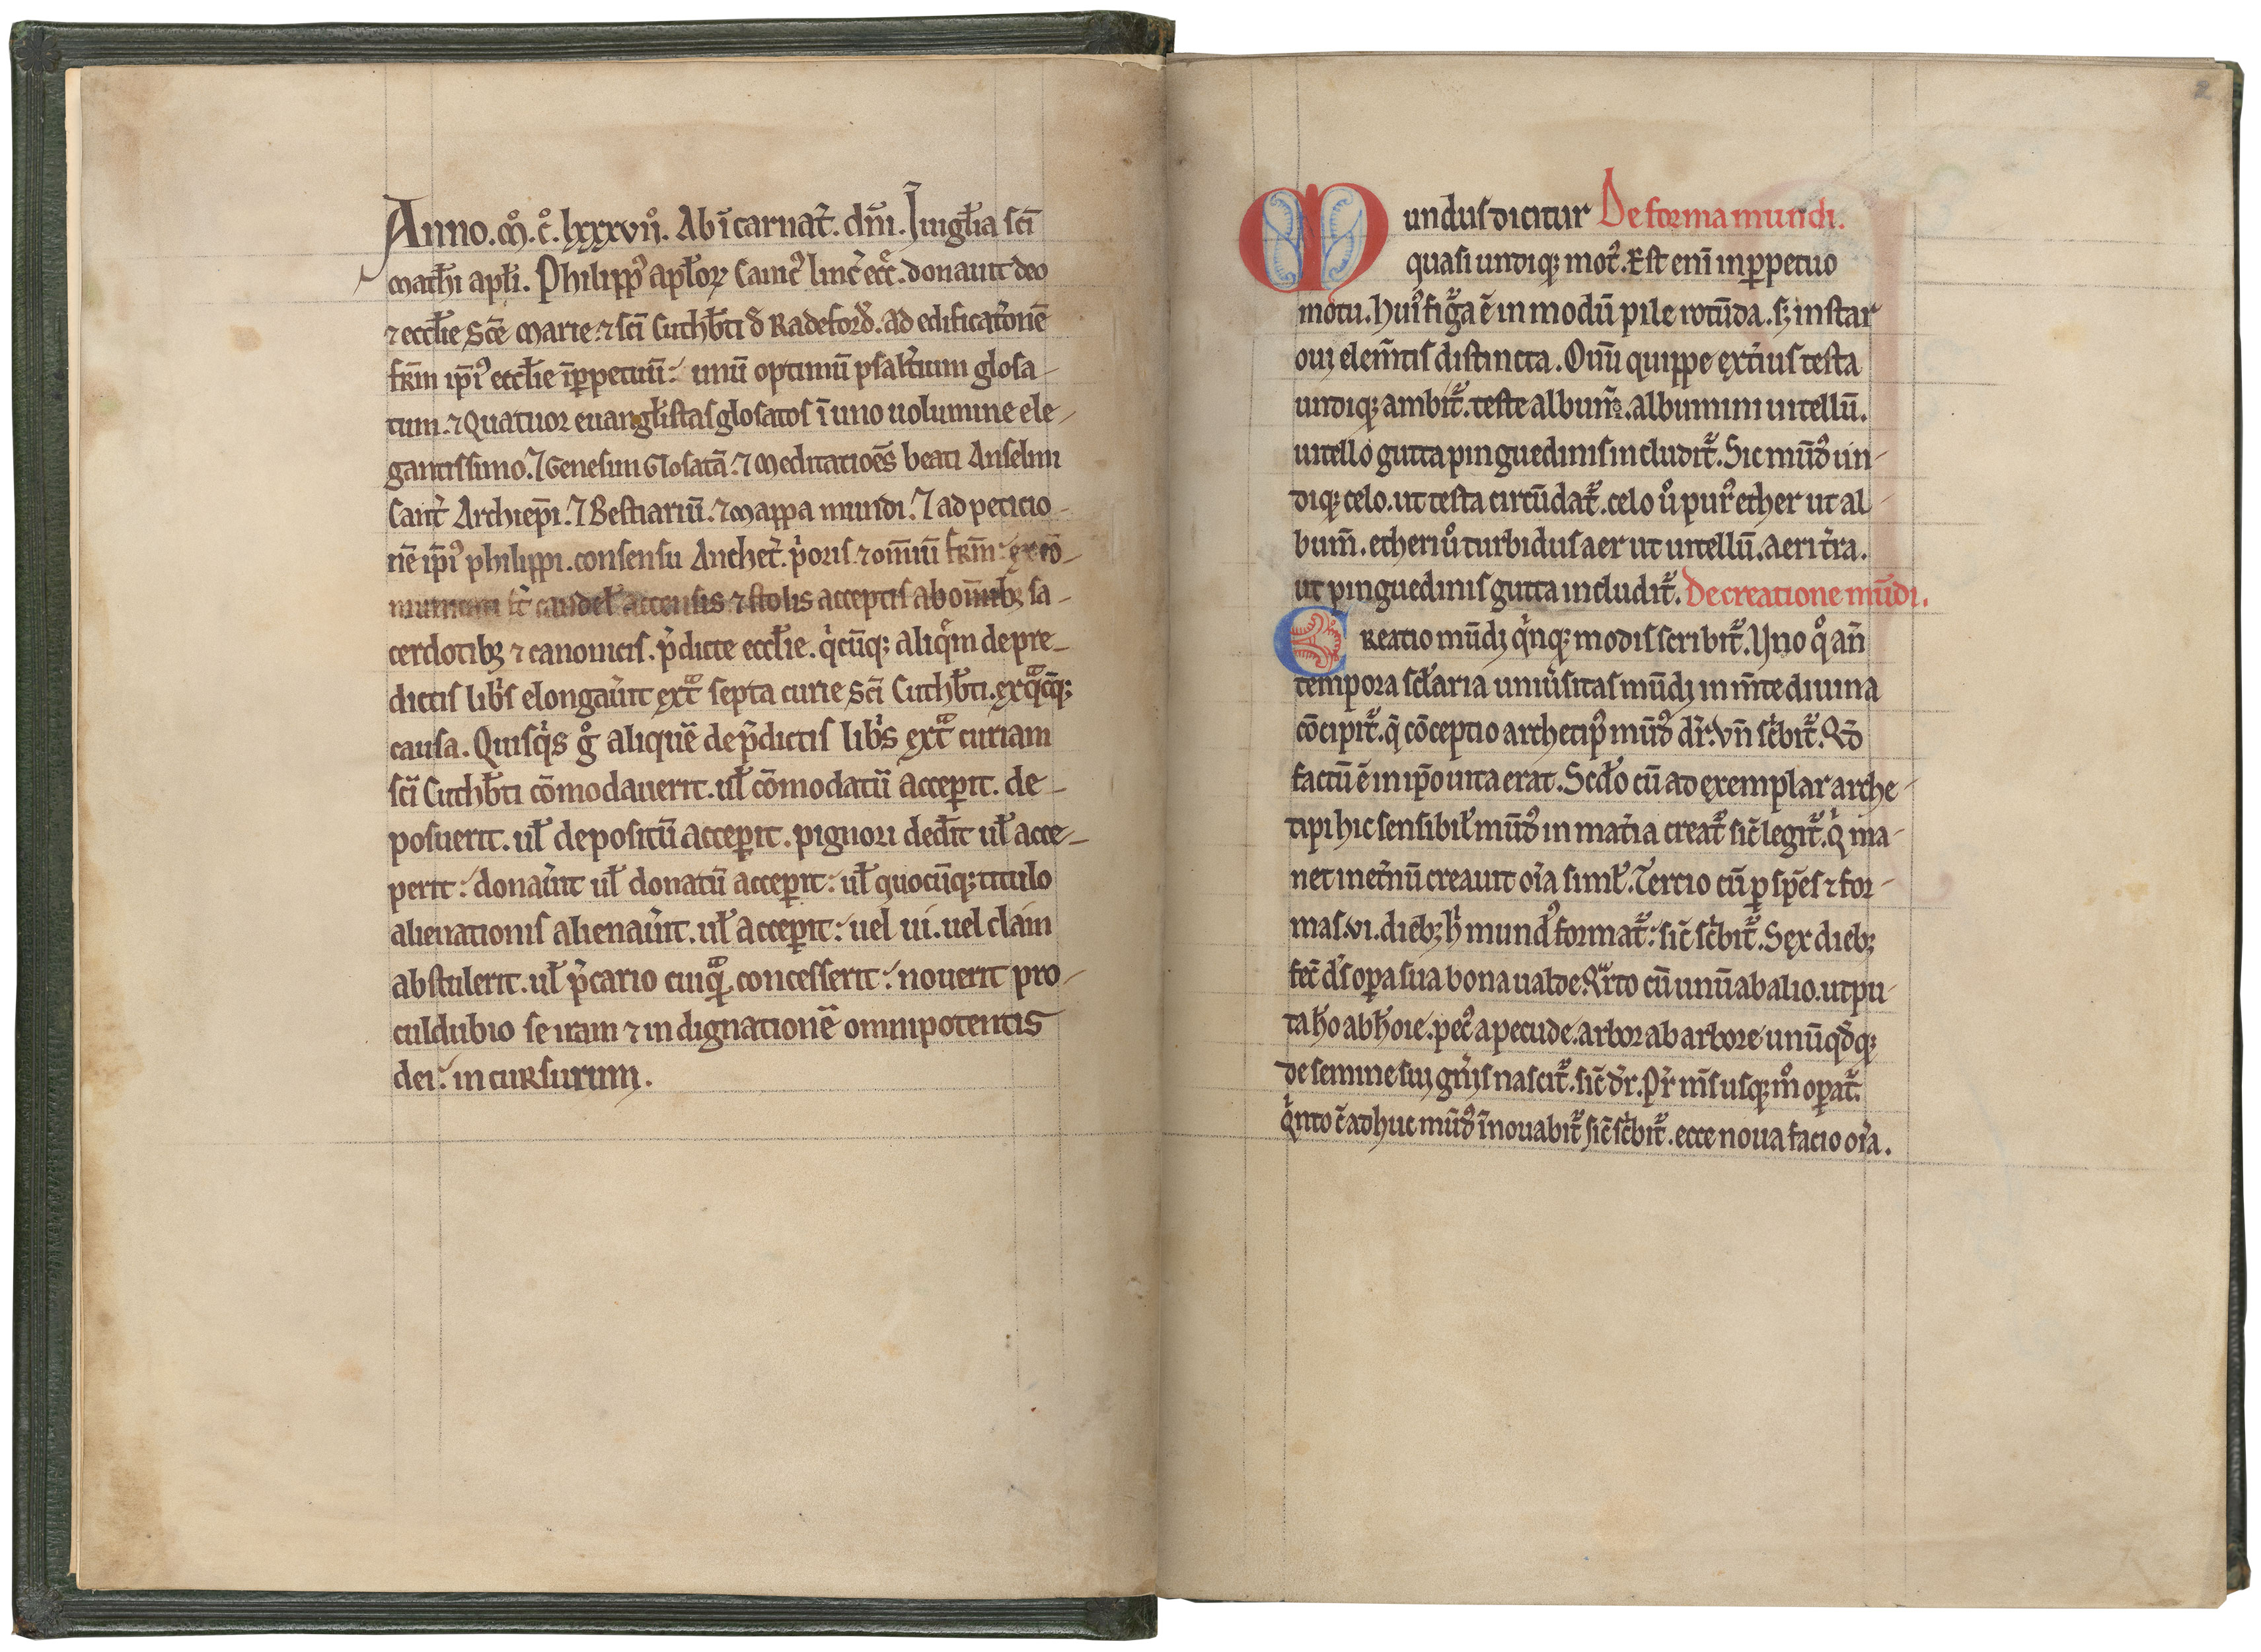 Anno. m̊. c̊. lxxxvii̊. Ab ī carnat̄. dn̄i. In uigl̄ia sc̄i
mathi apl̄i. Philippꝰ apl̄oꝝ Canic̄ꝰ linc̄ ecc̄. donauit deo
⁊ eccl̄ie Sc̄e marie ⁊ sc̄i Cuthb̄ti đ Radeforđ. ad edificat̄onē
frm̄ ip̄iꝰ eccl̄ie īꝑpetuū: unū optimū psalt̄ium glosa-
tum. ⁊ Quatuor euangl̄istas glosatos ī uno uolumine ele-
gantissimo. ⁊ Genesim Glosatā. ⁊ meditatioēs beati Anselmi
Cant̄ Archiep̄i. ⁊ Bestiariū. ⁊ mappa mundi. ⁊ ad peticio-
nē ip̄iꝰ philippi. consensu Anchet̄. p̄oris ⁊ om̄iū frm̄: ex cō-
candel̄ accensis ⁊ stolis acceptis ab om̄ibꝫ sa-
cerdotibꝫ ⁊ canonicis. p̄dicte eccl̄ie. qͥcūqꝫ aliqͦm de pre-
dictis libͥs elongau̓it extͣ septa curie sc̄i Cuthb̄ti. ex qͣcūqꝫ
causa. Quisqͥs gͦ aliquē de p̄dictis libͥs extͣ curiam
sc̄i Cuthb̄ti cōmodauerit. ul̄ cōmodatū acceꝑit. de-
posuerit. ul̄ depositū acceꝑit. pignori ded̄it ul̄ acce-
perit: donau̓it ul̄ donatū acceꝑit: ul̄ quocūqꝫ titulo
alienationis alienau̓it. ul̄ acceꝑit: uel ui. uel clam
abstulerit. ul̄ p̄cario cuiqͣ concesserit: nouerit pro-
culdubio se iram ⁊ indignationē omnipotentis
dei: incursurum.
Mundus dicitur De forma mundi.
quasi undiqꝫ motꝰ. Est enī in ꝑpetuo
motu. huiꝰ figͣa ē in modū pile rotūda. sꝫ instar
oui elem̄tis distincta. Ouū quippe ext̄ius testa
undiqꝫ ambit᷑. teste album̄. albumini uitellū.
uitello gutta pinguedinis includit᷑. Sic mūdꝰ un-
diqꝫ celo. ut testa circūdat᷑. celo ůpurꝰ ether ut al-
bum̄. etheri ů turbidus aer ut uitellū. aeri t̄ra.
ut pinguedinis gutta includit᷑. De creatione mūdi.
Creatio mūdi qͥnqꝫ modis scribit᷑. Uno qͦ an̄
tempora scl̄aria uniu̓sitas mūdi in m̄te diuina
cōcipit᷑. q̄ cōceptio archetipꝰ mūdꝰ dr̄. vn̄ sc̓bit᷑. Qđ
factū ē in ip̄o uita erat. Scđo cū ad exemplar arche-
tipi hic sensibil̄ mūdꝰ in mat̄ia creat᷑ sic̄ legit᷑. Qͥ ma-
net in et̄nū creauit oı̄a simul̄. Tertio cū ꝑ sp̄es ⁊ for-
mas. vi. diebꝫ hͥ mundꝰ format᷑: sic̄ sc̓bit᷑. Sex diebꝫ
fec̄ ds̄ oꝑa sua bona ualde. Qͣrto cū unū ab alio. utpu-
ta hō ab hoı̄e. pecꝰ a pecude. arbor ab arbore unūqđqꝫ
de semine sui gn̄is nascit᷑. sic̄ dr̄. Pr̄ m̄s usqꝫ mͦ oꝑat᷑.
Qͥnto c̄ adhuc mūdꝰ īnouabit᷑ sic̄ sc̓bit᷑. ecce noua facio oı̄a.
2